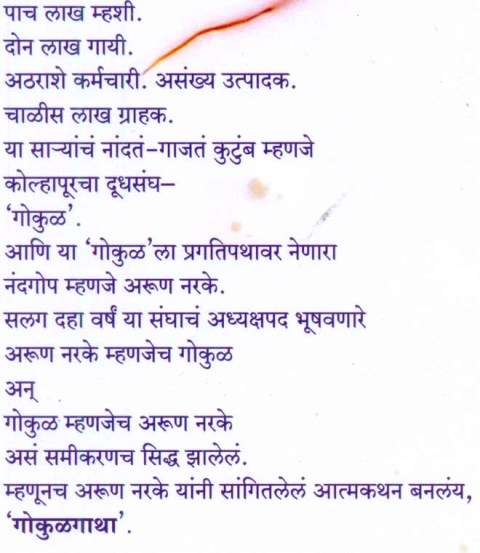 पाच लाख म्हशी.
दोन लाख गायी.
अठराशे कर्मचारी. असंख्य उत्पादक.
चाळीस लाख ग्राहक.
या साऱ्यांचं नांदतं-गाजतं कुटुंब म्हणजे
कोल्हापूरचा दूधसंघ–
‘गोकुळ’.
आणि या ‘गोकुळ’ला प्रगतिपथावर नेणारा
नंदगोप म्हणजे अरूण नरके.
सलग दहा वर्षं या संघाचं अध्यक्षपद भूषवणारे
अरूण नरके म्हणजेच गोकुळ
अन्
गोकुळ म्हणजेच अरूण नरके
असं समीकरणच सिद्ध झालेलं.
म्हणूनच अरूण नरके यांनी सांगितलेलं आत्मकथन बनलंय,
‘गोकुळगाथा’.